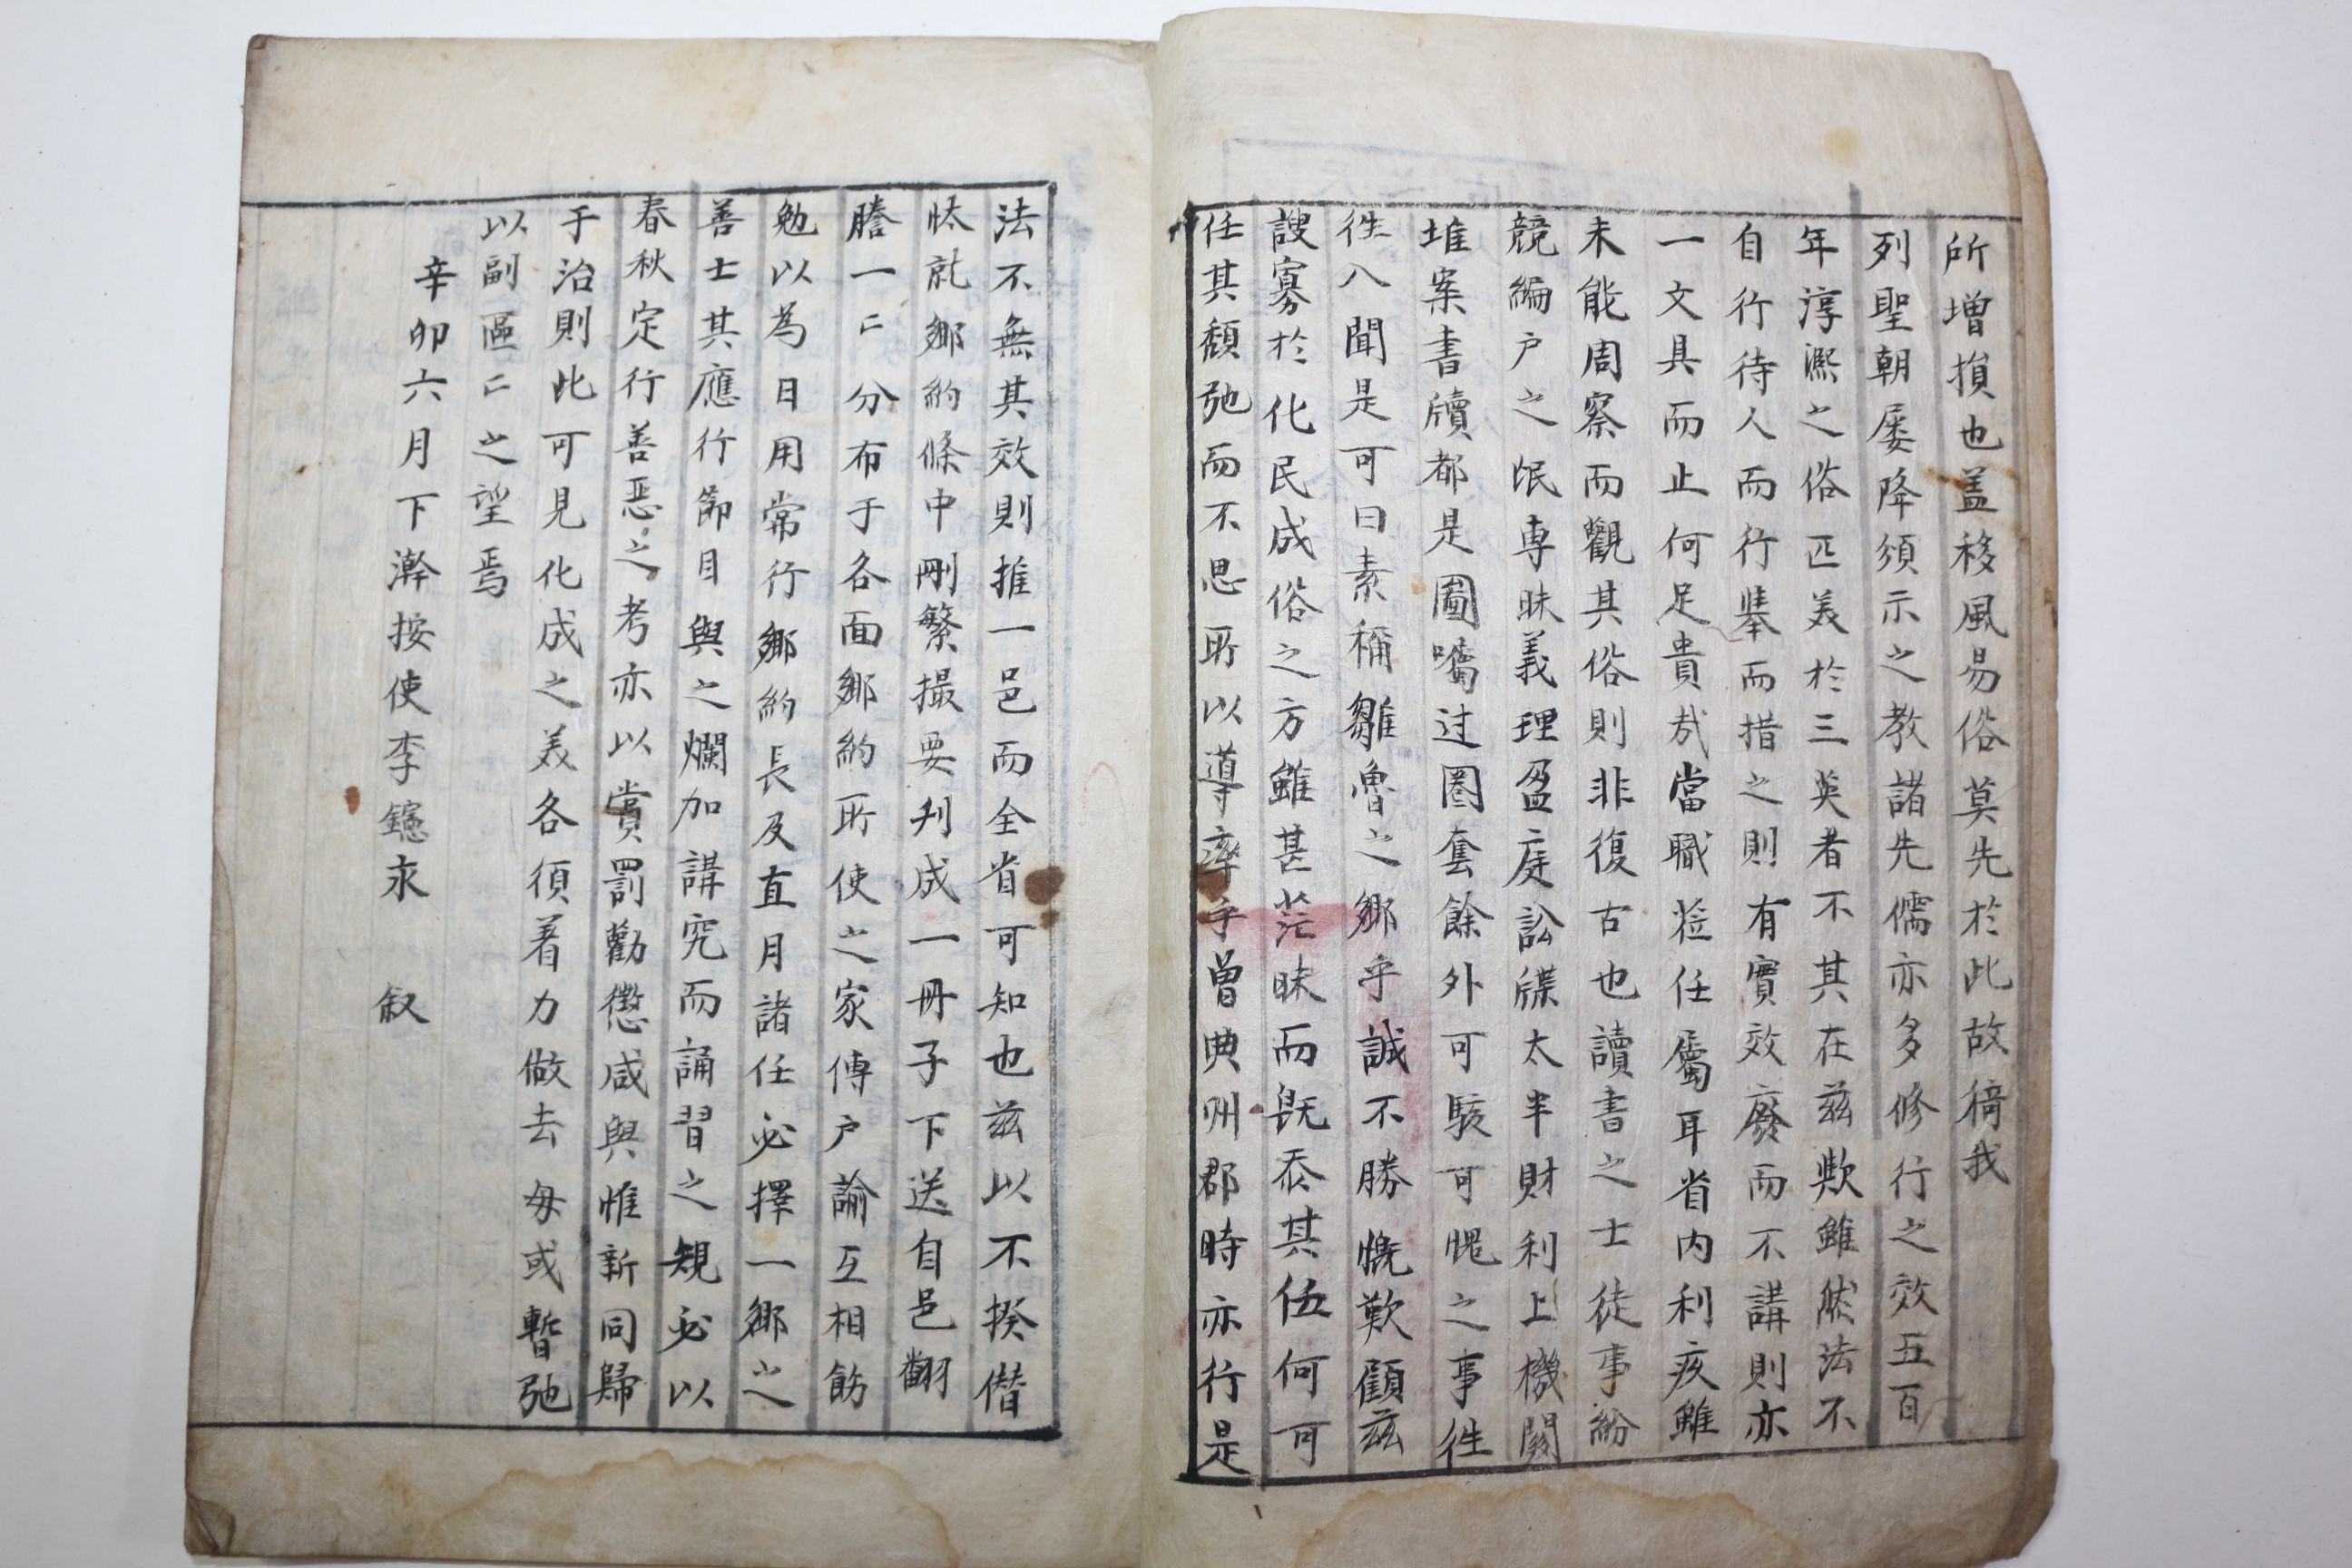 所增損也盖移風易俗莫先於此故猗我
列聖朝屡降須示之教諸先儒亦多修行之效五百
年淳凞之俗匹美於三英者不其在茲歟雖然法不
自行待人而行擧而措之則有實效廢而不講則亦
一文具而止何足貴㢤當職莅任屬耳省內利疚雖
未能周察而觀其俗則非復古也讀書之士徒事紛
競編户之氓専昧義理盈庭訟牒太半財利上機関
堆案書牘都是圖囑过圈套餘外可駭可愧之事徃
徃入聞是可曰素稱鄒魯之鄉乎誠不勝慨歎顧茲
謏寡於化民成俗之方雖甚茫昧而旣忝其伍何可
任其頹弛而不思所以導率乎曽典州郡時亦行是
法不無其效則推一邑而全省可知也茲以不揆僣
㤦就鄉約條中刪繁撮要刋成一冊子下送自邑翻
謄一二分布于各面鄉約所使之家傳户諭互相飭
勉以為日用常行鄉約長及直月諸任必擇一鄉之
善士其應行節目與之爛加講究而誦習之規必以
春秋定行善惡之考亦以賞罰勸懲咸與惟新同歸
于治則此可見化成之美各須着力做去毋或暫弛
以副區二之望焉
辛卯六月下澣按使李𨯶永 叙